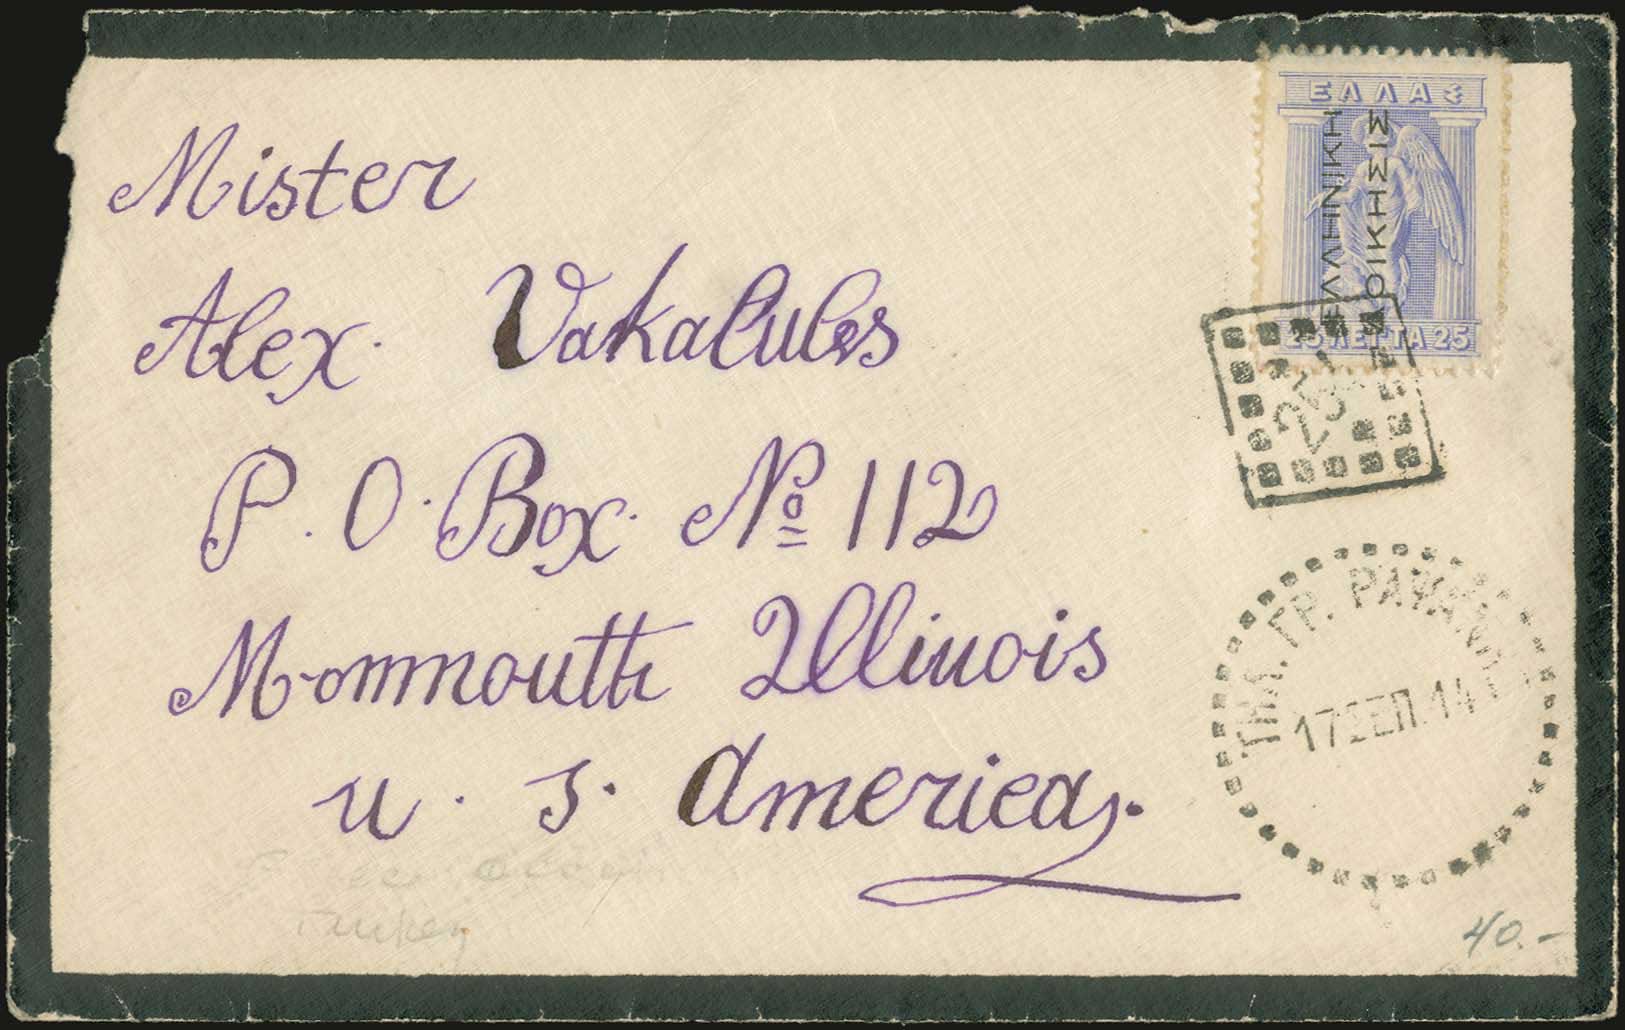 Mister
Alex. Vakalules
P. O. Box. Nº 112
Monmouth Illinois
u. s. America.
ΕΛΛΑΣ
ΕΛΛΗΝΙΚΗ
ΔΙΟΙΚΗΣΙΣ
25 ΛΕΠΤΑ 25
ΤΗΛ. ΓΡ.
17 ΣΕΠ. 14
40.-